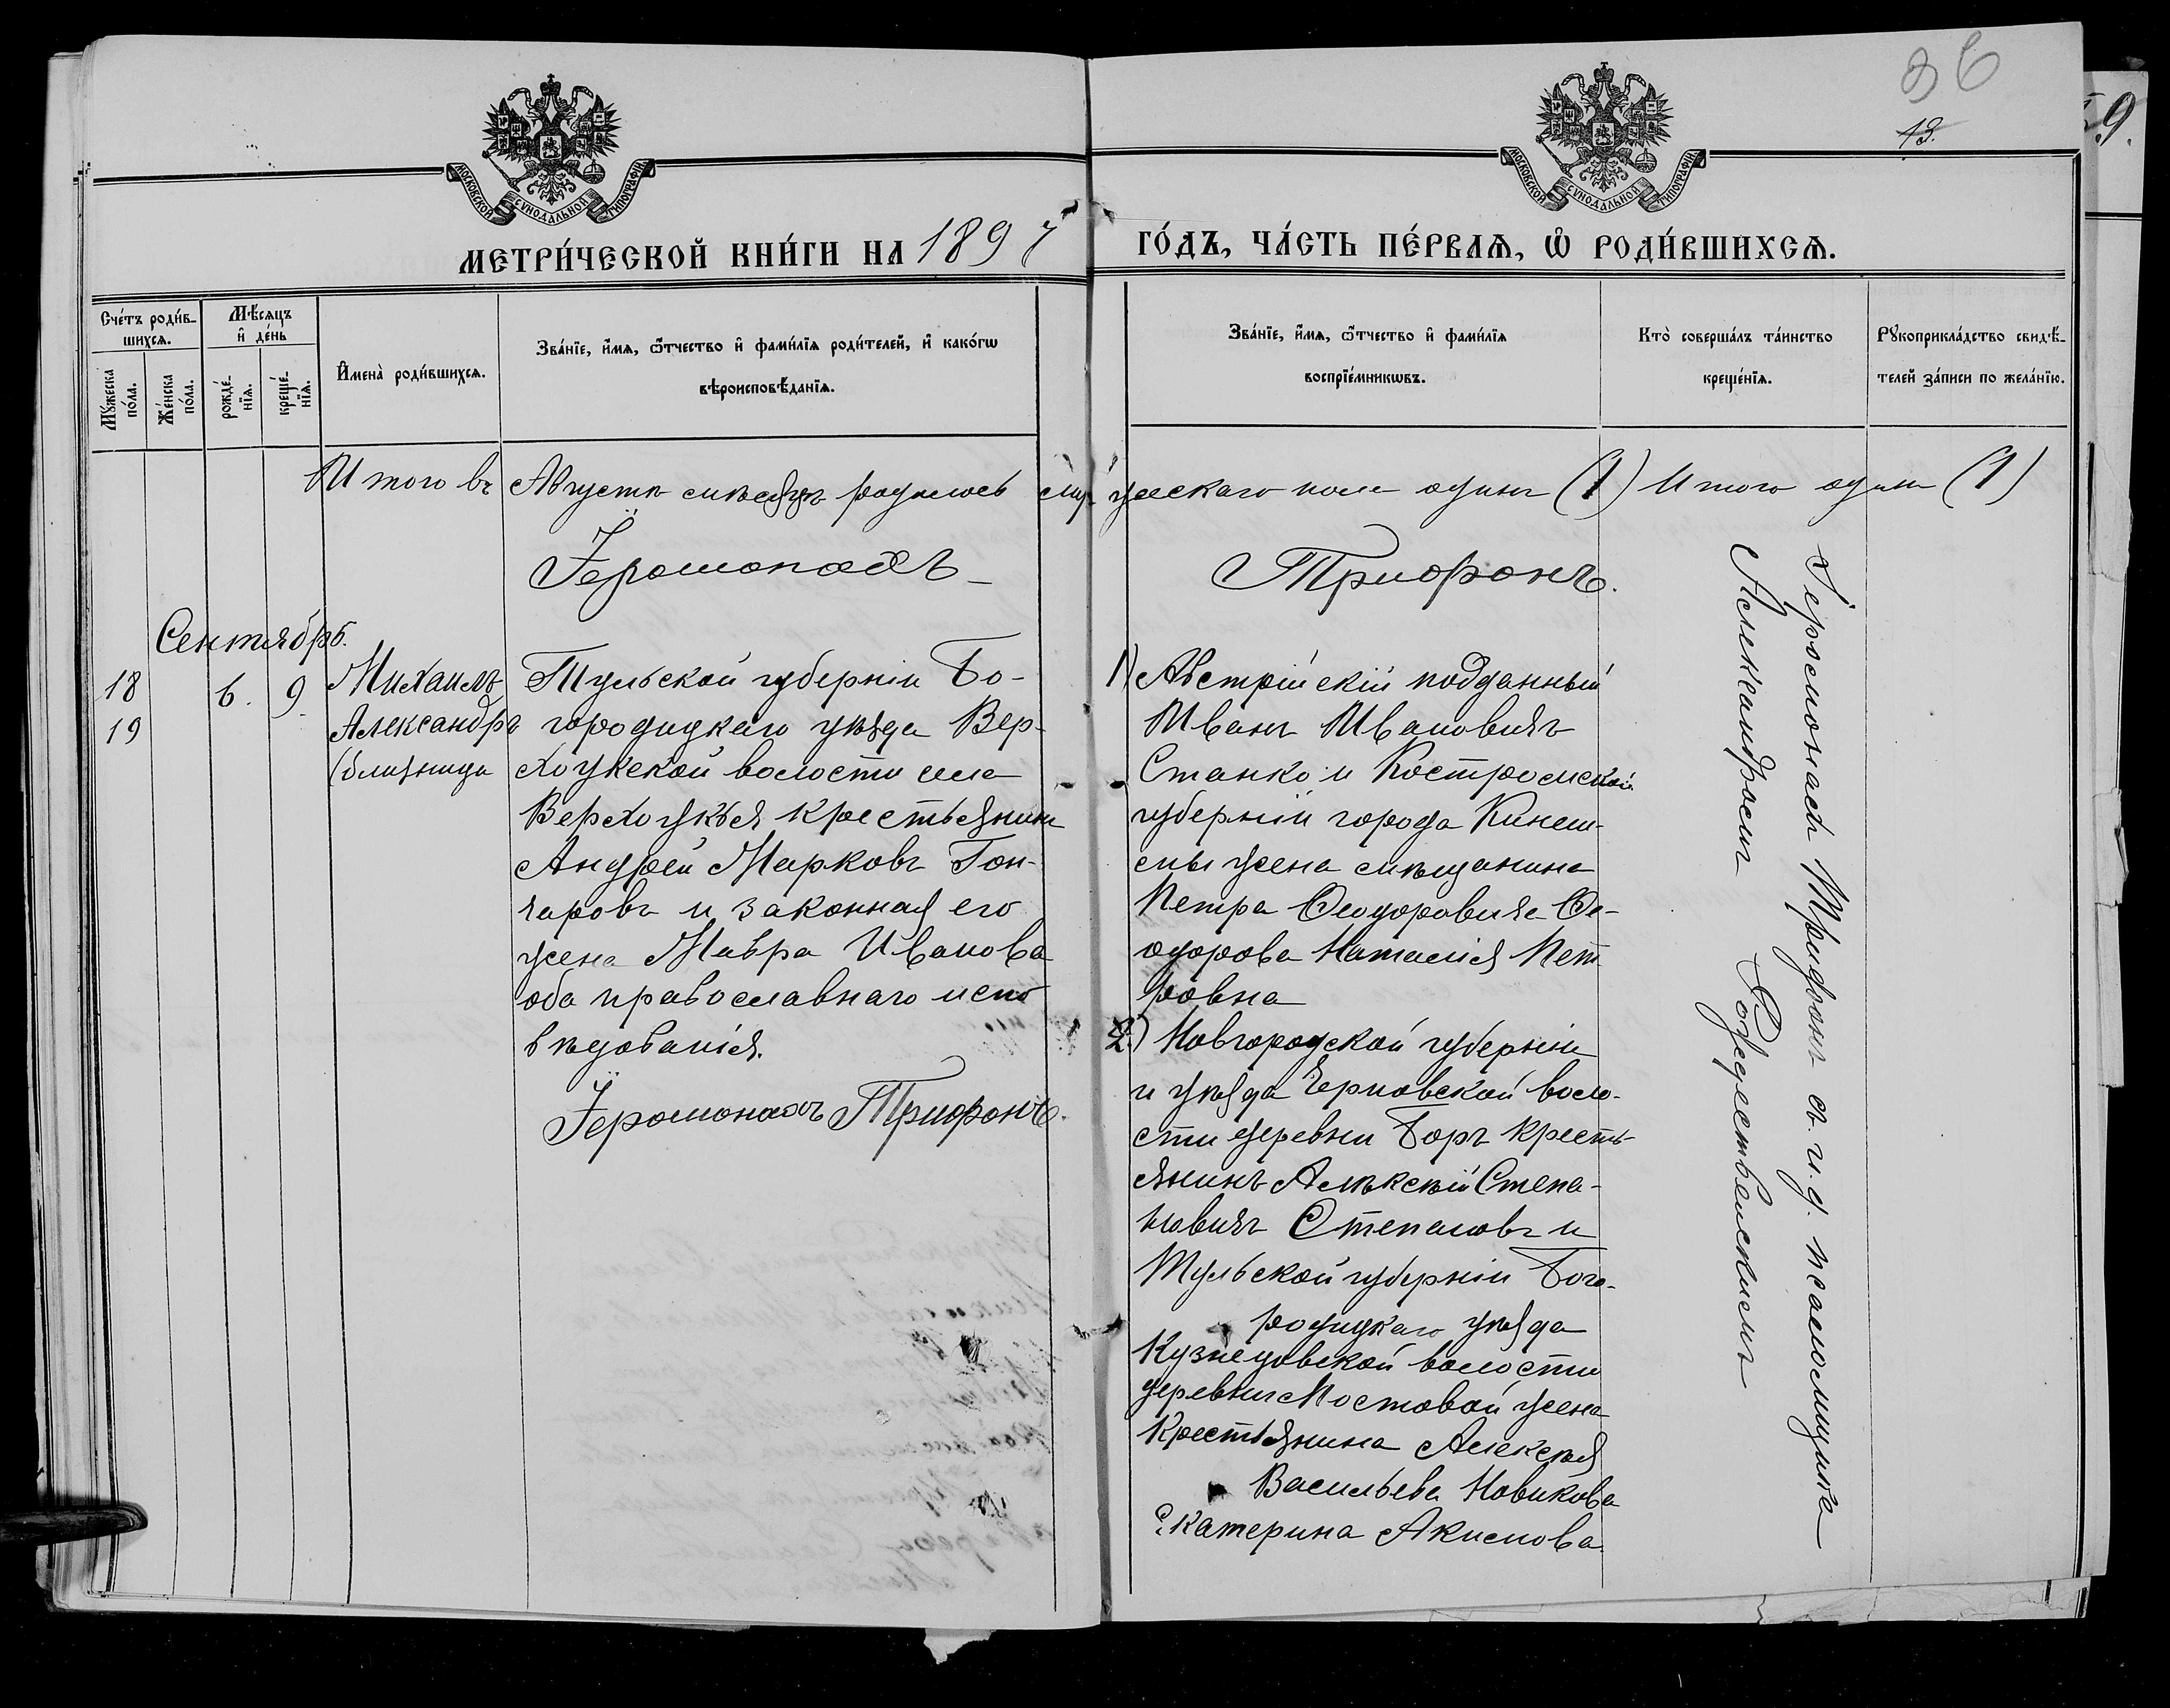 36
13.
59.
МОСКОВСКОЙ СѴНОДАЛЬНОЙ ТИПОГРАФІИ
МОСКОВСКОЙ СѴНОДАЛЬНОЙ ТИПОГРАФІИ
МЕТРИ́ЧЕСКОЙ КНИ́ГИ НА 1897
ГО́ДЪ, ЧА́СТЬ ПЕ́РВАѦ, Ѡ҆ РОДИ́ВШИХСѦ.
Сче́тъ роди́в-
шихсѧ.
Мꙋ́жеска
по́ла.
Же́нска
по́ла.
Мѣ́сѧцъ
и҆ де́нь
рожде́-
нїѧ.
креще́-
нїѧ.
И҆мена̀ роди́вшихсѧ.
Зва́нїе, и҆́мѧ, ѻ҆́тчество и҆ фами́лїѧ роди́телей, и҆ како́гѡ
вѣроисповѣ́данїѧ.
Зва́нїе, и҆́мѧ, ѻ҆́тчество и҆ фами́лїѧ
воспрїе́мникѡвъ.
Кто̀ соверша́лъ та́инство
креще́нїѧ.
Рꙋкоприкла́дство свидѣ́-
телей за́писи по жела́нїю.
Итого въ Августѣ мѣсяцѣ родилось мужескаго пола одинъ (1) Итого одинъ (1)
Іеромонахъ Трифонъ.
Сентябрь.
18 6. 9. Михаилъ
19 Александръ
(близнецы
Тульской губерніи Бо-
городицкаго уѣзда Вер-
хоупской волости села
Верхоупья крестьянинъ
Андрей Марковъ Гон-
чаровъ и законная его
жена Мавра Иванова
оба православнаго испо
вѣдованія.
Іеромонахъ Трифонъ.
1) Австрійскій подданный
Иванъ Ивановичъ
Станко и Костромской
губерніи города Кинеш-
мы жена мѣщанина
Петра Ѳеодоровича Ѳе-
одорова Наталія Пет
ровна
2.) Новгородской губерніи
и уѣзда Черновской воло-
сти деревни Боръ кресть
янинъ Алѣксѣй Степа-
новичъ Степановъ и
Тульской губерніи Бого-
родицкаго уѣзда
Кузнецовской волости
деревни Мостовой жена
Крестьянина Алексѣя
Васильева Новикова
Екатерина Акимова.
Іеромонахъ Трифонъ съ и. д. псаломщика
Александромъ Рождественскимъ